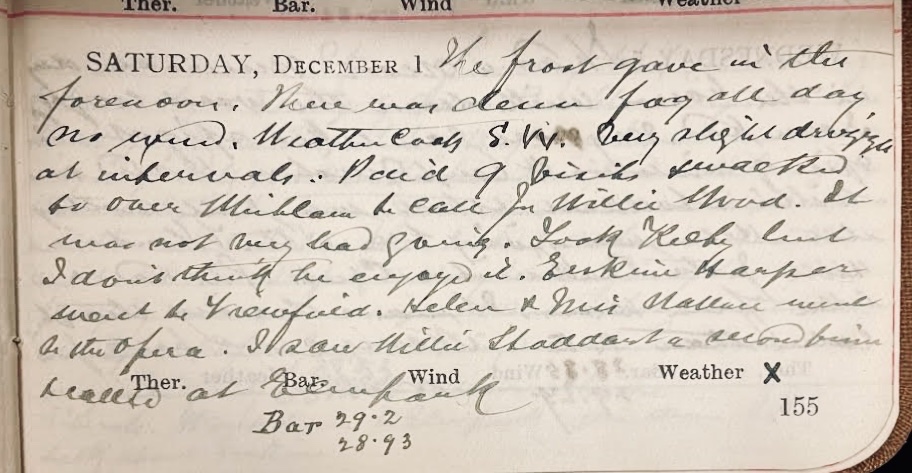 Ther. Bar. Wind Weather
SATURDAY, DECEMBER 1 The frost gave in this
forenoon. There was dense fog all day
no wind. Weathercock S.W. Very slight drizzle
at intervals. Paid 9 visits walked
to over to call for Willie Wood. It
was not very bad going. Took Kelby but
I don't think he enjoyed it. Erskine Harper
went to Viewfield. Helen & Miss Nattan went
to the Opera. I saw Willie Stoddart a second time
at
Ther. Bar. Wind Weather X
Bar 29.2
28.93
155